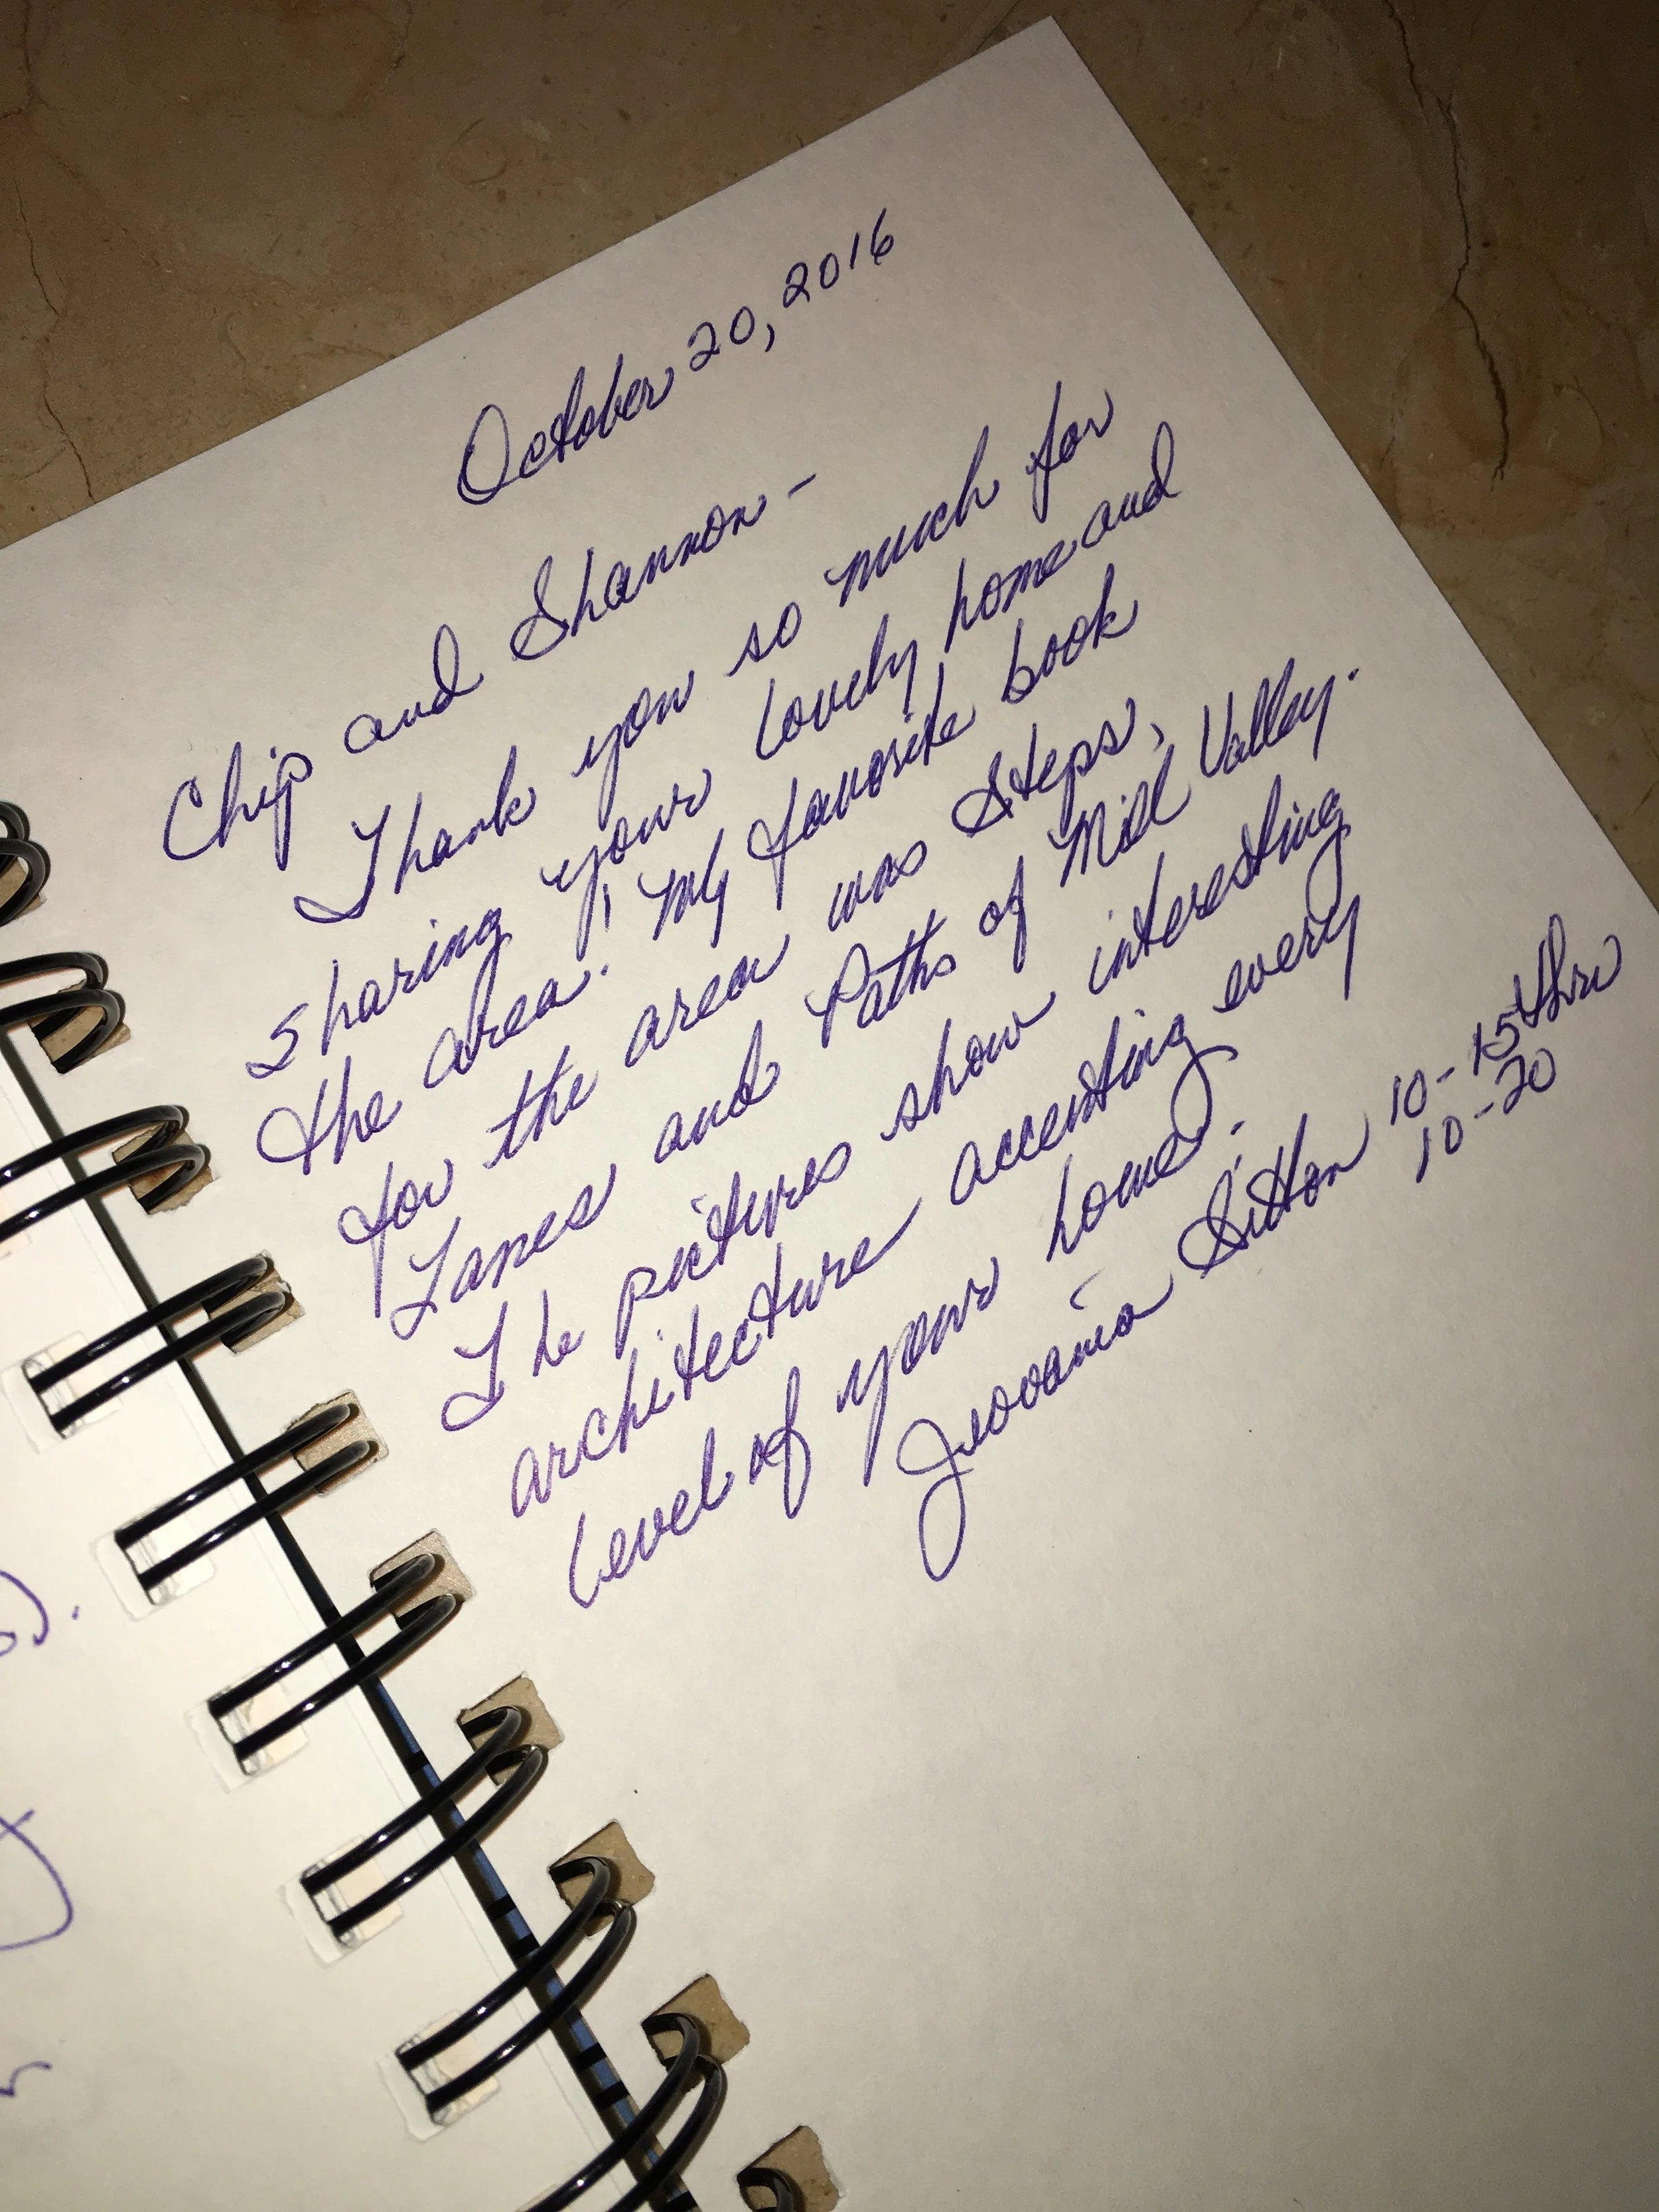 October 20, 2016
Chip and Shannon -
Thank you so much for
sharing your lovely home and
the area! My favorite book
for the area was Steps,
Lanes and Paths of Mill Valley.
The pictures show interesting
architecture accenting every
level of your home.
Jeovania Sitton 10-15 thru
10-20